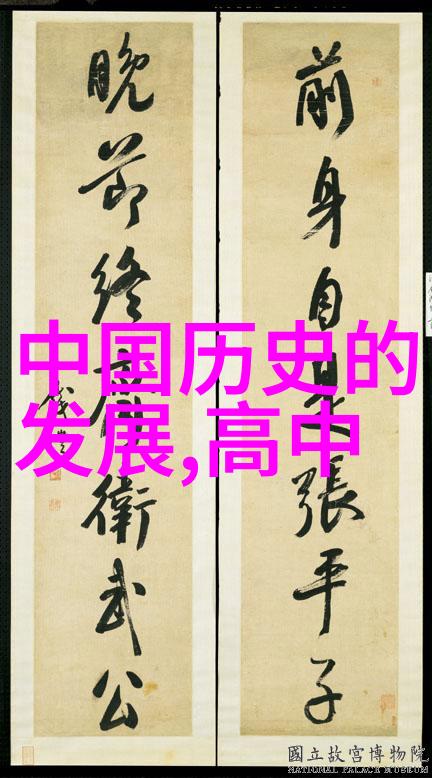 前身自是張平子
晚節終衛武公
中国历史的
发展,高中
國立故宮博物院
NATIONAL PALACE MUSEUM